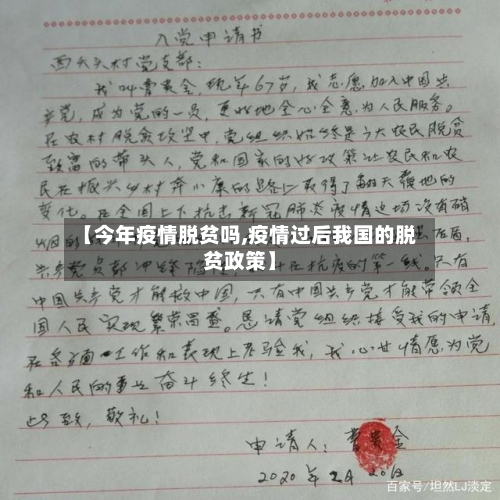 入党申请书
西头村党支部:
我叫 金,现年67岁,我志愿加入中国共
产党,成为党的一员,更好地全心全意为人民服务。
在农村脱贫攻坚中,党组织始终是广大农民脱贫
致富的带头人,党和国家的好政策让农民和农
民在振兴乡村奔小康的路上取得了翻天覆地的
变化。在全国上下抗击新冠肺炎疫情这场没有硝
烟的
【今年疫情脱贫吗,疫情过后我国的脱
贫政策】
共产党员都冲锋 在抗疫的第一线。只有
中国共产党才能救中国,只有中国共产党才能带领全
国人民实现繁荣富强。恳请党组织接受我的申请,
在各方面工作和表现上考验我,我心甘情愿为党
和人民的事业奋斗终生!
此致,敬礼!
申请人: 金
2020年2月20日
百家号/坦然LJ淡定